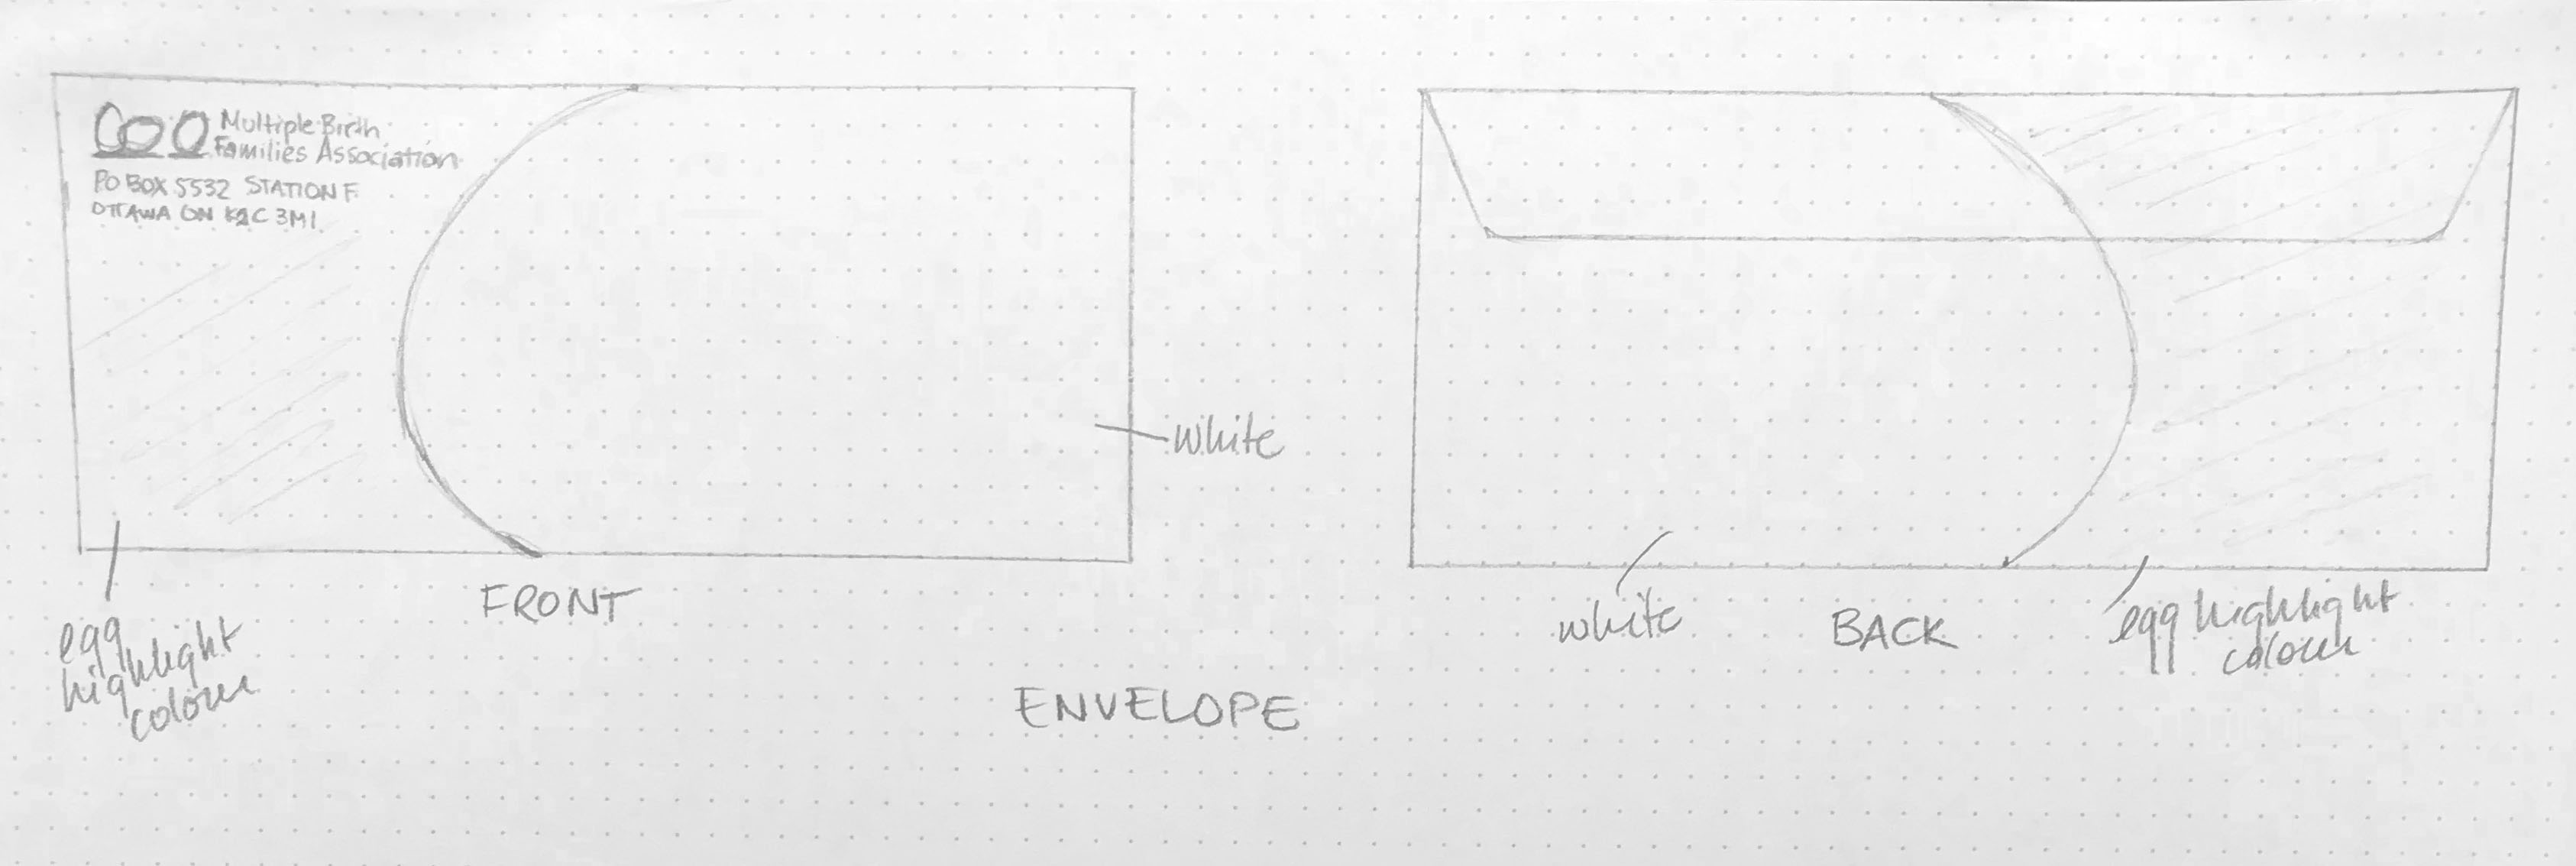 Multiple Birth
Families Association
PO BOX 5532 STATION F
OTTAWA ON K2C 3M1
white
egg
highlight
colour
FRONT
white
BACK
egg highlight
colour
ENVELOPE